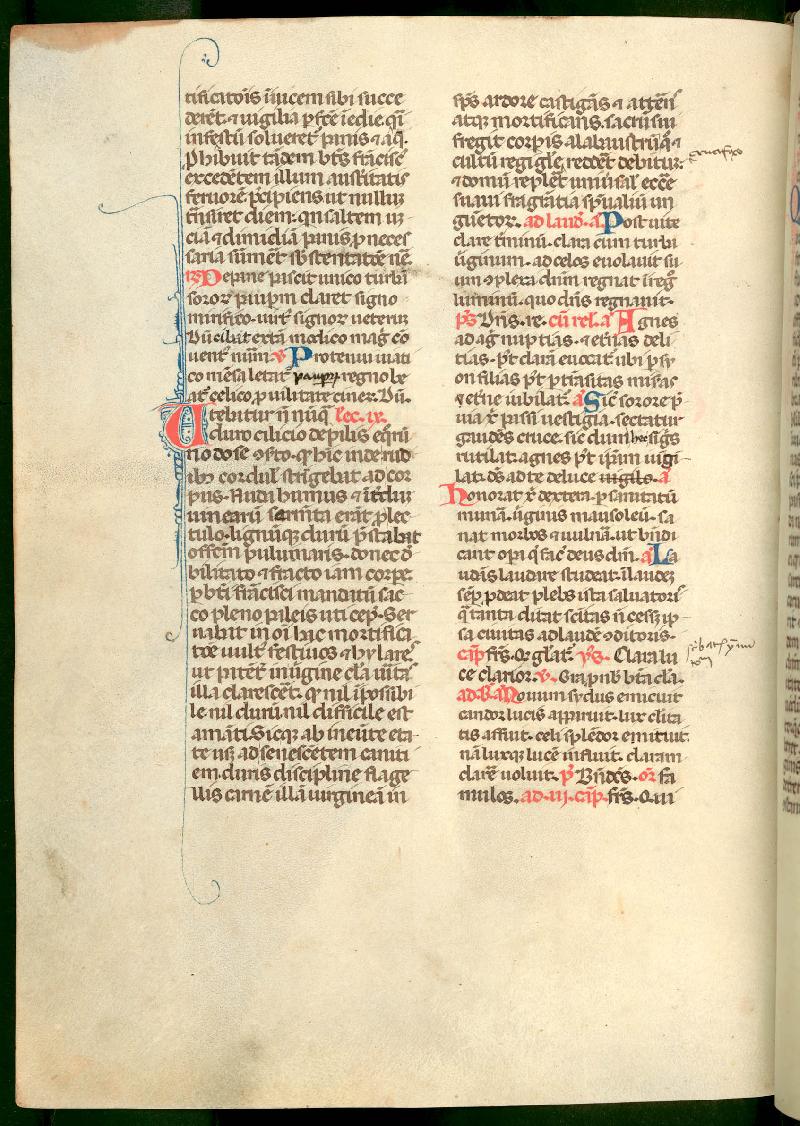 tificatoīs īuicem sibi succe
deret. ⁊ uigilia ꝑfcē īedie. qī
infestū solueret pinis ⁊ aq̄.
Phibuit tādem btūs frācisc̄
excedētem illum austitatis
feruorē p̄cipiens ut nulluz
trāsiret diem. qn saltem uz
ciā ⁊ dimidiā panis. ꝓ neces
saria sumet sbstentatōe
Pepane pascit unico turbā
sororꝝ pauꝑm claret signo
mirifico. uirt signoꝝ ueterū
Dū cibat extā modico maḡ cō
uent mūm. v Protenui uiati
co mēsa letat̄ regno be
at̄ celico. ꝓ uilitate ciner. Dū.
Utebitur n̄ nūq̄ lec. ix.
duro cilicio de pilis eq̄rū
nodose ⁊ ꝯfto. q̄ hic inde rud
ibꝫ cordul stringebat ad cor
pus. Nuda humus ⁊ īterduꝫ
uinearū sarmēta erāt ꝓ lec
tulo. lignūqꝫ durū p̄stabat
offem puluinaris. donec d
bilitato ⁊ fracto iam corpe.
ꝑ bti frācisci mandatū sac
co pleno paleis uti cep̄. Ser
uabit in oī hac mortifica
toe uult̄ festiuos ⁊ hylares
ut pitet̄ in uirgine cla uita
illa clarescet. q̄ nil īpossibi
le. nil durū. nil difficile est
amāti. Sicqꝫ ab ineūte eta
te usqꝫ ad senescētem caniti
em. duris discipline flage
llis carnē illā uirgineā in
sps̄ ardore castigās ⁊ atten
atqꝫ mortificans. sacrū sui
fregit corpis alabaustrū. q̄ ⁊
cultū regi gl̄e reddet debitū.
crucifixo
⁊ domū replet uniūsal eccē
suaui fragrātia sp̄ualiū un
guētoꝝ. ad laud. a. Post uite
clare tminū. clara cum turbi
uirginum. ad celos euolauit su
um ꝯplexa dnm regnat ī reg
luminū. quo dn̄s regnauit.
p̄s Dn̄s. re. cū rel. a Agnes
ad aḡ nuptias. ⁊ etnas deli
tias. p̄t clarā euocat. ubi ꝑ sy
on filias p̄t ptrāsitas misias
etne iubilat̄. a Sic sorore p̄
uia x̄ passi uestigia. sectatur
gaudēs cruce. sic dum his sigs
rutilat. agnes p̄t ipam uigi
lat. ds ad te de luce uigils. a
honorat x̄ dextera. ꝑ sanitatū
munā. uirginis mausoleū. sa
nat morbos ⁊ uulnā. ut bn̄di
cant opa q̄ fac deus dni. a La
udans laudare studeat. ī laudeꝫ
sep. ꝓdeat plebs ista saluatori
q̄ tanta ditat scitas n̄ cessꝫ ip
sa ciuitas ad laudē ꝯditoris.
cap̄ frs. Q̄ glat̄. ys. Clara lu
ce clarior. v. Ora p nob bta cla.
ad. B. a. Nouum sydus emicuit
candor lucis appruit. lux clita
tis affuit. celi splēdor emituit.
nā luxqꝫ lucē influit. claram
clarē uoluit. p̄ Bn̄dcs. or̄ fa
mulos. ad. iii. cap̄. frs. Q̄ ui